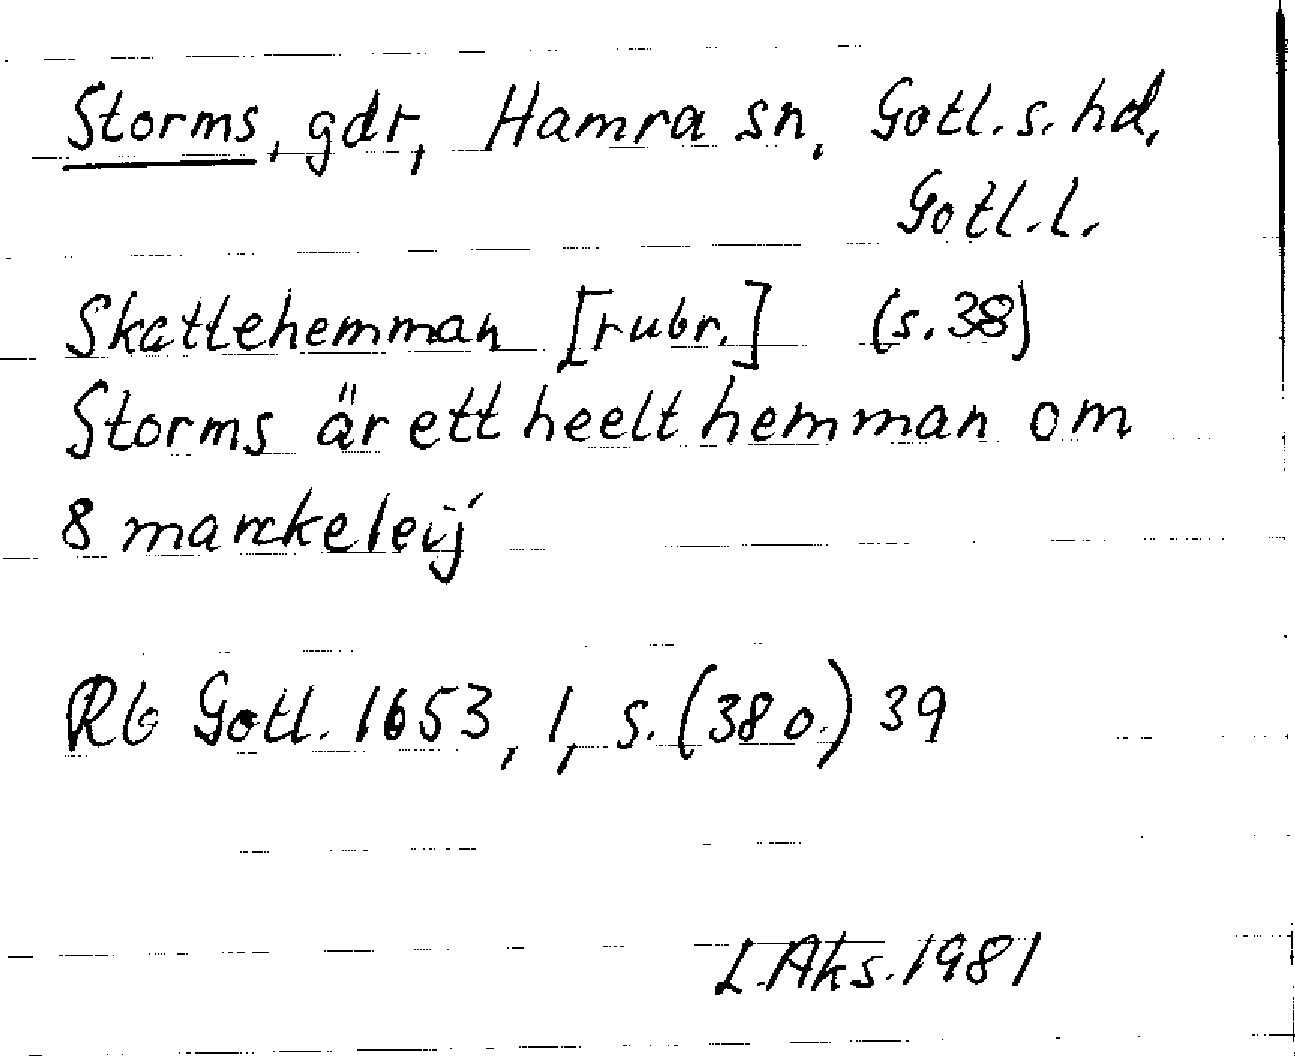 Storms, gdr, Hamra sn, Gotl. s. hd,
Gotl. l.
Skattehemman [rubr.] (s. 38)
Storms är ett heelt hemman om
8 marckeleij
Rb Gotl. 1653, 1, s. (38 o.) 39
L. Aks. 1981